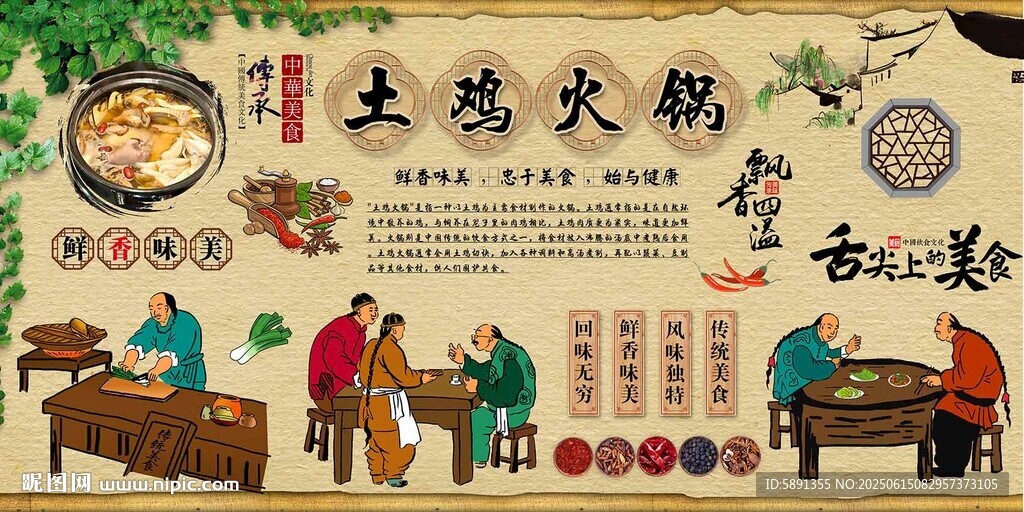 土鸡火锅
中華美食
文化
傳承
【中國傳統美食文化】
鲜香味美，忠于美食，始与健康
"土鸡火锅"是指一种以土鸡为主要食材制作的火锅。土鸡通常指的是在自然环
境中散养的鸡，与饲养在笼子里的肉鸡相比，土鸡肉质更为紧实，味道更加鲜
美。火锅则是中国传统的饮食方式之一，将食材放入沸腾的汤底中煮熟后食用
。土鸡火锅通常会用土鸡切块，加入各种调料和高汤煮制，再配以蔬菜、豆制
品等其他食材，供人们围炉共食。
鲜香味美
飘香四溢
舌尖上的美食
美食
中國飲食文化
回味无穷
鲜香味美
风味独特
传统美食
传统美食
昵图网 www.nipic.com
ID:5891355 NO:20250615082957373105